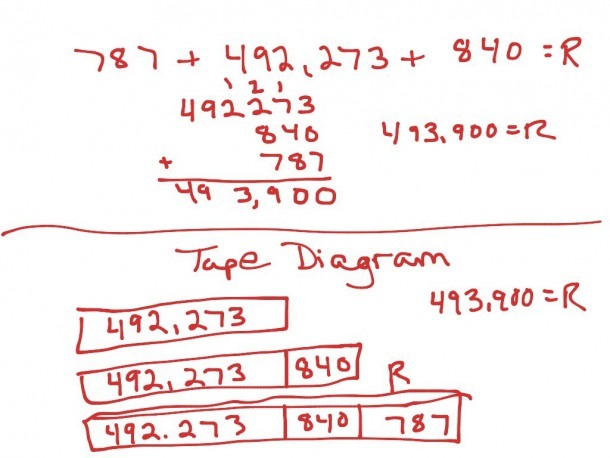 787 + 492,273 + 840 = R
1 2 1
492273
840
+ 787
493,900
493,900 = R
Tape Diagram
493,900 = R
492,273
492,273 840
R
492.273 840 787